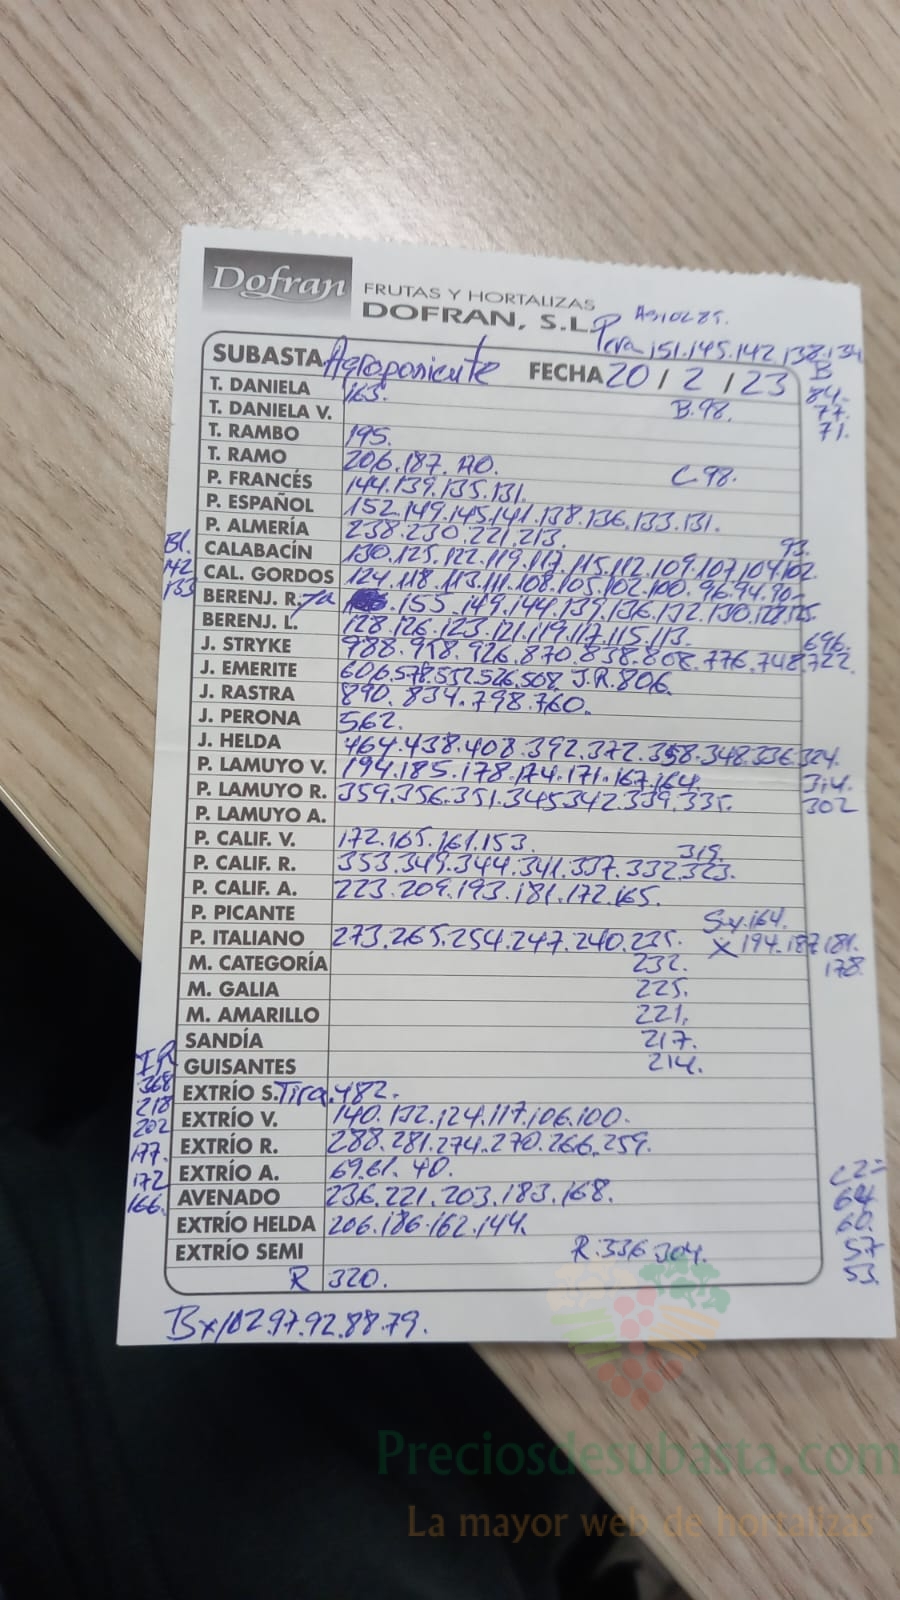 Dofran
FRUTAS Y HORTALIZAS
DOFRAN, S.L.
Pera 151.145.142.138.134
SUBASTA Agroponiente FECHA 20/2/23 B
84.
T. DANIELA 163.
T. DANIELA V. B.98. 77.
71.
T. RAMBO 195.
T. RAMO 206.187.170.
P. FRANCÉS 144.139.135.131. C.98.
P. ESPAÑOL 152.149.145.141.138.136.133.131.
P. ALMERÍA 238.230.221.213. 93.
Bl. CALABACÍN 130.125.122.119.117.115.112.109.107.104.102.
142 CAL. GORDOS 124.118.113.111.108.105.102.100.96.94.90.
133 BERENJ. R. 155.149.144.139.136.132.130.128.125.
BERENJ. L. 128.126.123.121.119.117.115.113. 696.
J. STRYKE 988.958.926.870.838.808.776.748.722.
J. EMERITE 606.578.552.526.508. J.R.806.
J. RASTRA 890.834.798.760.
J. PERONA 562.
J. HELDA 464.438.408.392.372.358.348.336.324.
P. LAMUYO V. 194.185.178.174.171.167.164. 314.
P. LAMUYO R. 359.356.351.345.342.339.335. 302
P. LAMUYO A.
P. CALIF. V. 172.165.161.153. 319.
P. CALIF. R. 353.349.344.341.337.332.323.
P. CALIF. A. 223.209.193.181.172.165.
P. PICANTE Sx.164.
P. ITALIANO 273.265.254.247.240.235. X 194.187.181.
M. CATEGORÍA 232. 178.
M. GALIA 225.
M. AMARILLO 221.
SANDÍA 217.
IR GUISANTES 214.
368 EXTRÍO S. Tira.482.
218 EXTRÍO V. 140.132.124.117.106.100.
202 EXTRÍO R. 288.281.274.270.266.259.
177. EXTRÍO A. 69.61.40. C2=
172 AVENADO 236.221.203.183.168. 64.
166. EXTRÍO HELDA 206.186.162.144. 60.
EXTRÍO SEMI R.336.304. 57
R 320. 53.
Bx/102.97.92.88.79.
Preciosdesubasta.com
La mayor web de hortalizas